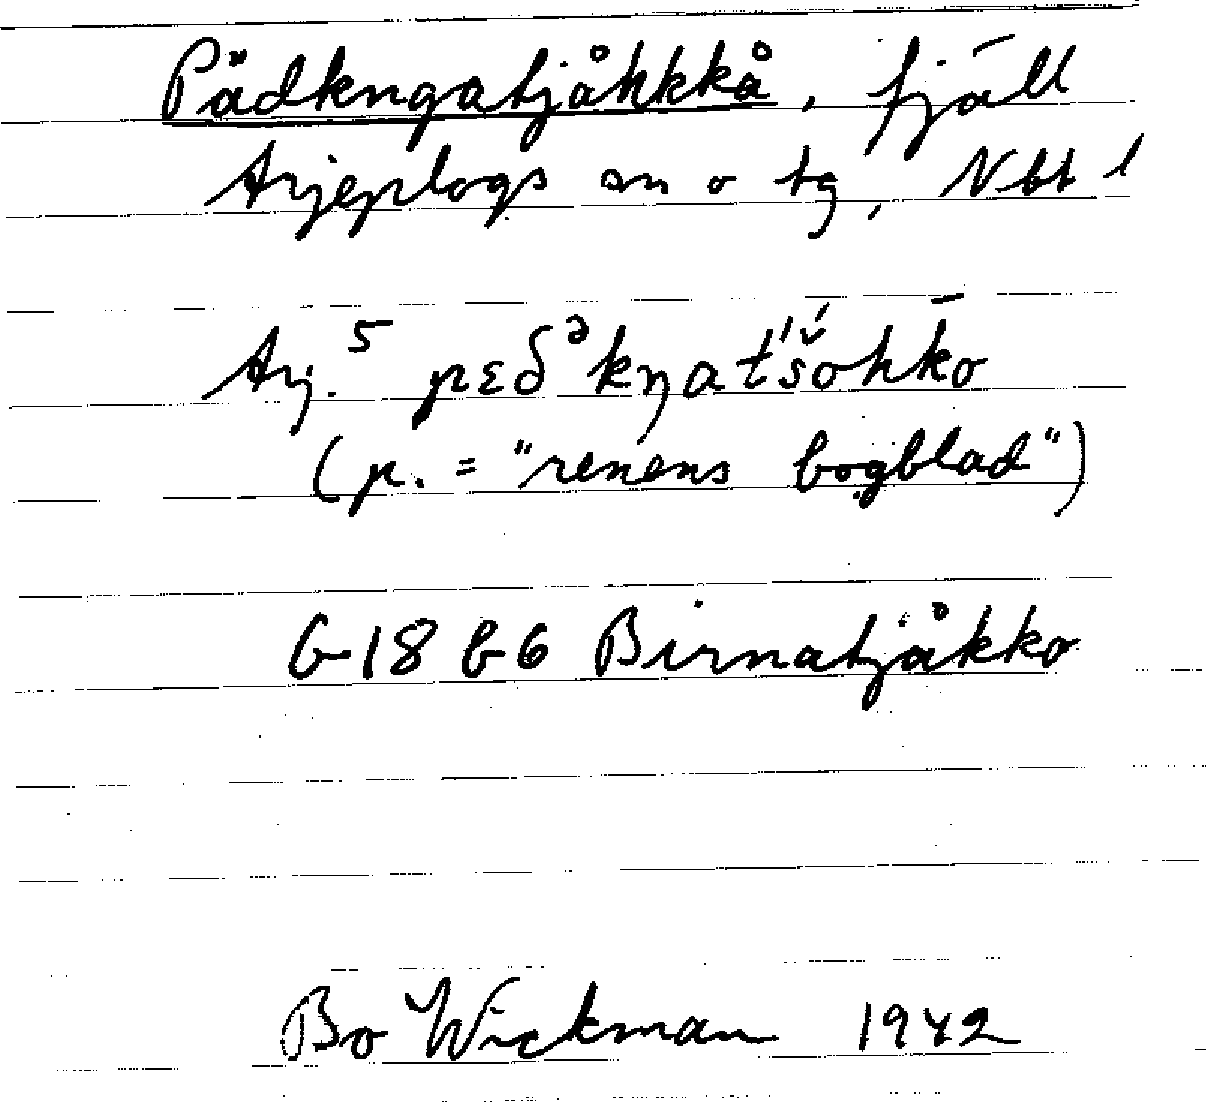 Pädkngatjåhkkå, fjäll
Arjeplogs sn o tg, Nbt l
Arj.⁵ pεδᵊkŋat́šohḱ̄o
(p. = "renens bogblad")
G-18 b 6 Birnatjåkko
Bo Wickman 1942